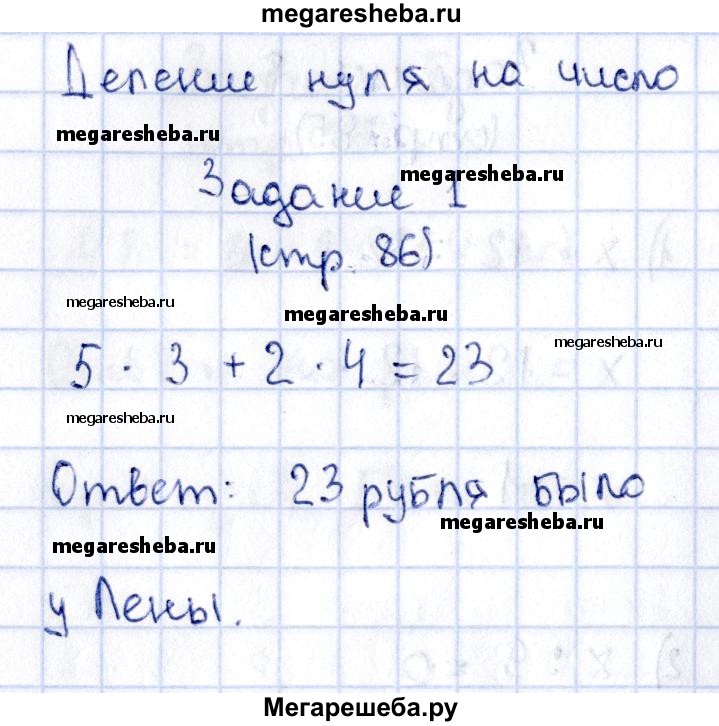 megaresheba.ru
Деление нуля на число
megaresheba.ru
megaresheba.ru
Задание 1
(стр. 86)
megaresheba.ru
megaresheba.ru
megaresheba.ru
5 · 3 + 2 · 4 = 23
megaresheba.ru
Ответ: 23 рубля было
megaresheba.ru
megaresheba.ru
у Лены.
Мегарешеба.ру